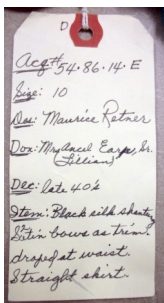 D
Acq# 54.86.14.E
Size: 10
Des: Maurice Retner
Don: Mrs Ancel Earp, Sr.
(Lillian)
Dec: late 40's
Item: Black silk shantung
Satin bows as trim.
draped at waist.
Straight skirt.